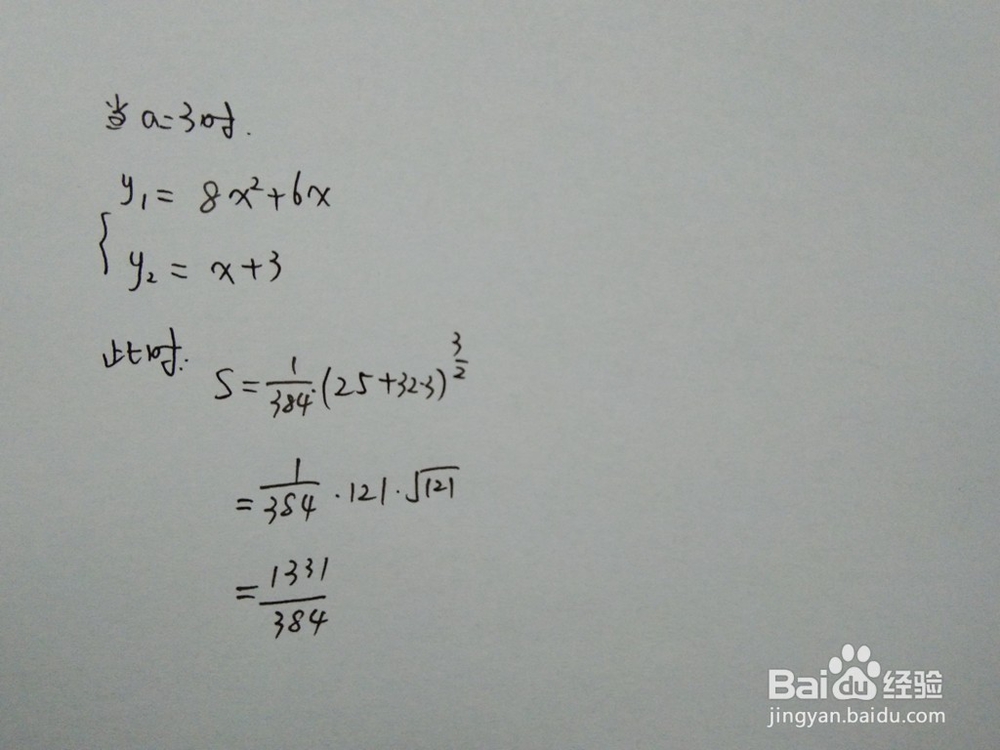 当a=3时.
y₁= 8x²+6x
y₂= x+3
此时. S=1/384·(25+32·3)^(3/2)
=1/384·121·√121
=1331/384
Baidu经验
jingyan.baidu.com